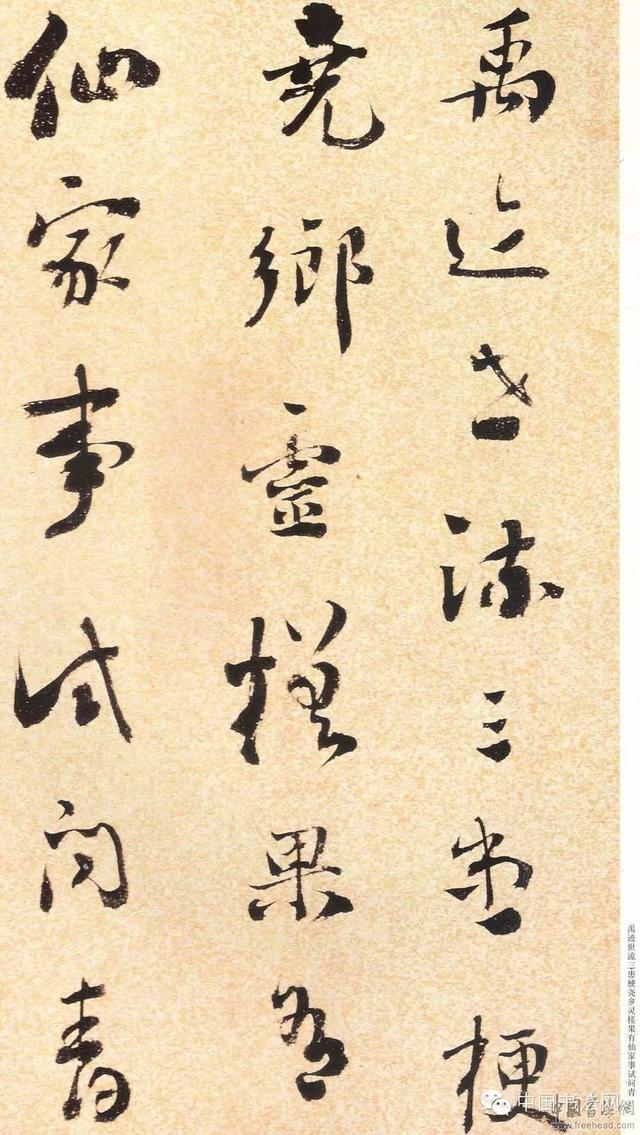 禹迹世流三患梗
堯鄉靈槎果有
仙家事試問青
禹迹世流三患梗尧乡灵槎果有仙家事试问青
中国书法网
www.freehead.com